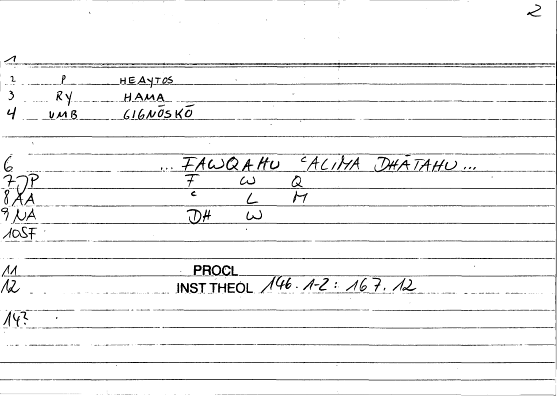 2
1
2 P HEAYTOS
3 RY HAMA
4 VMB GIGNŌSKŌ
6 ... FAWQAHU ʿALIMA DHĀTAHU ...
7 JP F W Q
8 AA ʿ L M
9 NA DH W
10SF
11 PROCL
12 INST THEOL 146.1-2: 167.12
14?